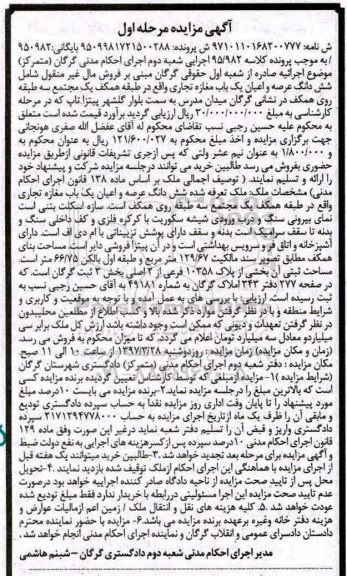 آگهی مزایده مرحله اول
ش نامه: ۹۷۱۰۱۱۰۱۶۸۲۰۰۷۷۷ ش پرونده: ۹۵۰۹۹۸۱۷۲۱۵۰۰۲۸۸ بایگانی: ۹۵۰۹۸۲
/به موجب پرونده کلاسه ۹۵/۹۸۲ اجرایی شعبه دوم اجرای احکام مدنی گرگان (متمرکز)
موضوع اجرائیه صادره از شعبه اول حقوقی گرگان مبنی بر فروش مال غیر منقول شامل
شش دانگ عرصه و اعیان یک باب مغازه تجاری واقع در طبقه همکف یک مجتمع سه طبقه
روی همکف در نشانی گرگان میدان مدرس به سمت بلوار گلشهر پیتزا تاپ که در مرحله
کارشناسی به مبلغ ۳۰/۰۰۰/۰۰۰/۰۰۰ ریال ارزیابی گردید برآورد قیمت شده است متعلق
به محکوم علیه حسین رجبی نسب تقاضای محکوم له آقای عفضل الله صفری هونجانی
جهت برگزاری مزایده و اخذ مبلغ محکوم به ۱۲۱/۶۰۰/۰۲۷ ریال به عنوان محکوم به
و ۱/۸۰۰/۰۰۰ به عنوان نیم عشر دولتی که پس ازجری تشریفات قانونی ازطریق مزایده
حضوری بفروش می رسد طالبین خرید می توانند درجلسه مزایده شرکت و پیشنهاد خود
را ارائه و تسلیم نمایند. ( توصیف اجمالی ملک بر اساس ماده ۱۳۸ قانون اجرای احکام
مدنی) مشخصات ملک: ملک تعرفه شده شش دانگ عرصه و اعیان یک باب مغازه تجاری
واقع در طبقه همکف یک مجتمع سه طبقه روی همکف است. سازه اسکلت بتنی است
نمای بیرونی سنگ و درب ورودی شیشه سکوریت با کرکره فلزی و کف داخلی سنگ و
بدنه تا سقف سرامیک است بدنه و سقف دارای پوشش تزییناتی با ام دی اف است. دارای
آشپزخانه و اتاق فر و سرویس بهداشتی است و در آن پیتزا فروشی دایر است. مساحت بنای
همکف مطابق تصویر سند مالکیت ۱۲۹/۶۷ متر مربع و طبقه اول بالکن ۶۶/۷۵ متر است.
مساحت ثبتی آن بخشی از پلاک ۱۰۳۵۸ فرعی از ۲ اصلی بخش ۳ ثبت گرگان است. که
در صفحه ۲۷۷ دفتر ۳۴۳ املاک گرگان به شماره ۴۹۱۸۱ به آقای حسین رجبی نسب به
ثبت رسیده است. ارزیابی: با بررسی های به عمل آمده و با توجه به موقعیت و کاربری و
شرایط منطقه و با در نظر گرفتن موارد ذکر شده بالا و کسب اطلاع از مطلعین محلیبدون
در نظر گرفتن تعهدات و دیونی که ممکن است وجود داشته باشد ارزش کل ملک برابر سی
میلیاردو معادل سه میلیارد تومان اعلام می گردد. که تا میزان محکوم به فروش می رسد.
(زمان و مکان مزایده) زمان مزایده : روزدوشنبه ۱۳۹۷/۳/۲۸ از ساعت ۱۰ الی ۱۱ صبح.
مکان مزایده : دفتر شعبه دوم اجرای احکام مدنی (متمرکز) دادگستری شهرستان گرگان
(شرایط مزایده) ۱- مزایده ازمبلغی که توسط کارشناس تعیین گردیده برنده مزایده کسی
است که بالاترین مبلغ را درجلسه مزایده نماید ۲-برنده مزایده می بایست ۱۰درصد مبلغ
مورد پیشنهاد را تا پایان وقت اداری روز مزایده نقدا به حساب سپرده دادگستری تودیع
و مابقی آن را ظرف یک ماه ازتاریخ اجرای مزایده به حساب ۲۱۷۱۲۹۴۷۷۸۰۰۰ سپرده
دادگستری واریز و قبض آن را تسلیم دفتر شعبه نماید درغیر این صورت وفق ماده ۱۲۹
قانون اجرای احکام مدنی ۱۰درصد سپرده پس ازکسرهزینه های اجرایی به نفع دولت ضبط
و آگهی مزایده برای مرحله بعد تجدید خواهد شد. ۳-طالبین خرید میتوانند یک هفته قبل
از اجرای مزایده با هماهنگی این اجرای احکام ازملک توقیف شده بازدید نمایند .۴-تحویل
محل پس از تایید صحت مزایده از ناحیه دادگاه صادر کننده اجراییه خواهد بود درصورت
عدم تایید صحت مزایده این اجرا مسئولیتی دررابطه با خریدار ندارد فقط مبلغ تودیع شده
عودت خواهد شد .۵. کلیه هزینه های نقل و انتقال ملک / زمین اعم ازمالیات عوارض و
هزینه دفتر خانه وغیره برعهده برنده مزایده می باشد.۶- مزایده با حضور نماینده محترم
دادستان دادسرای عمومی و انقلاب گرگان و نماینده اجرای احکام مدنی انجام خواهد شد.
مدیر اجرای احکام مدنی شعبه دوم دادگستری گرگان - شبنم هاشمی